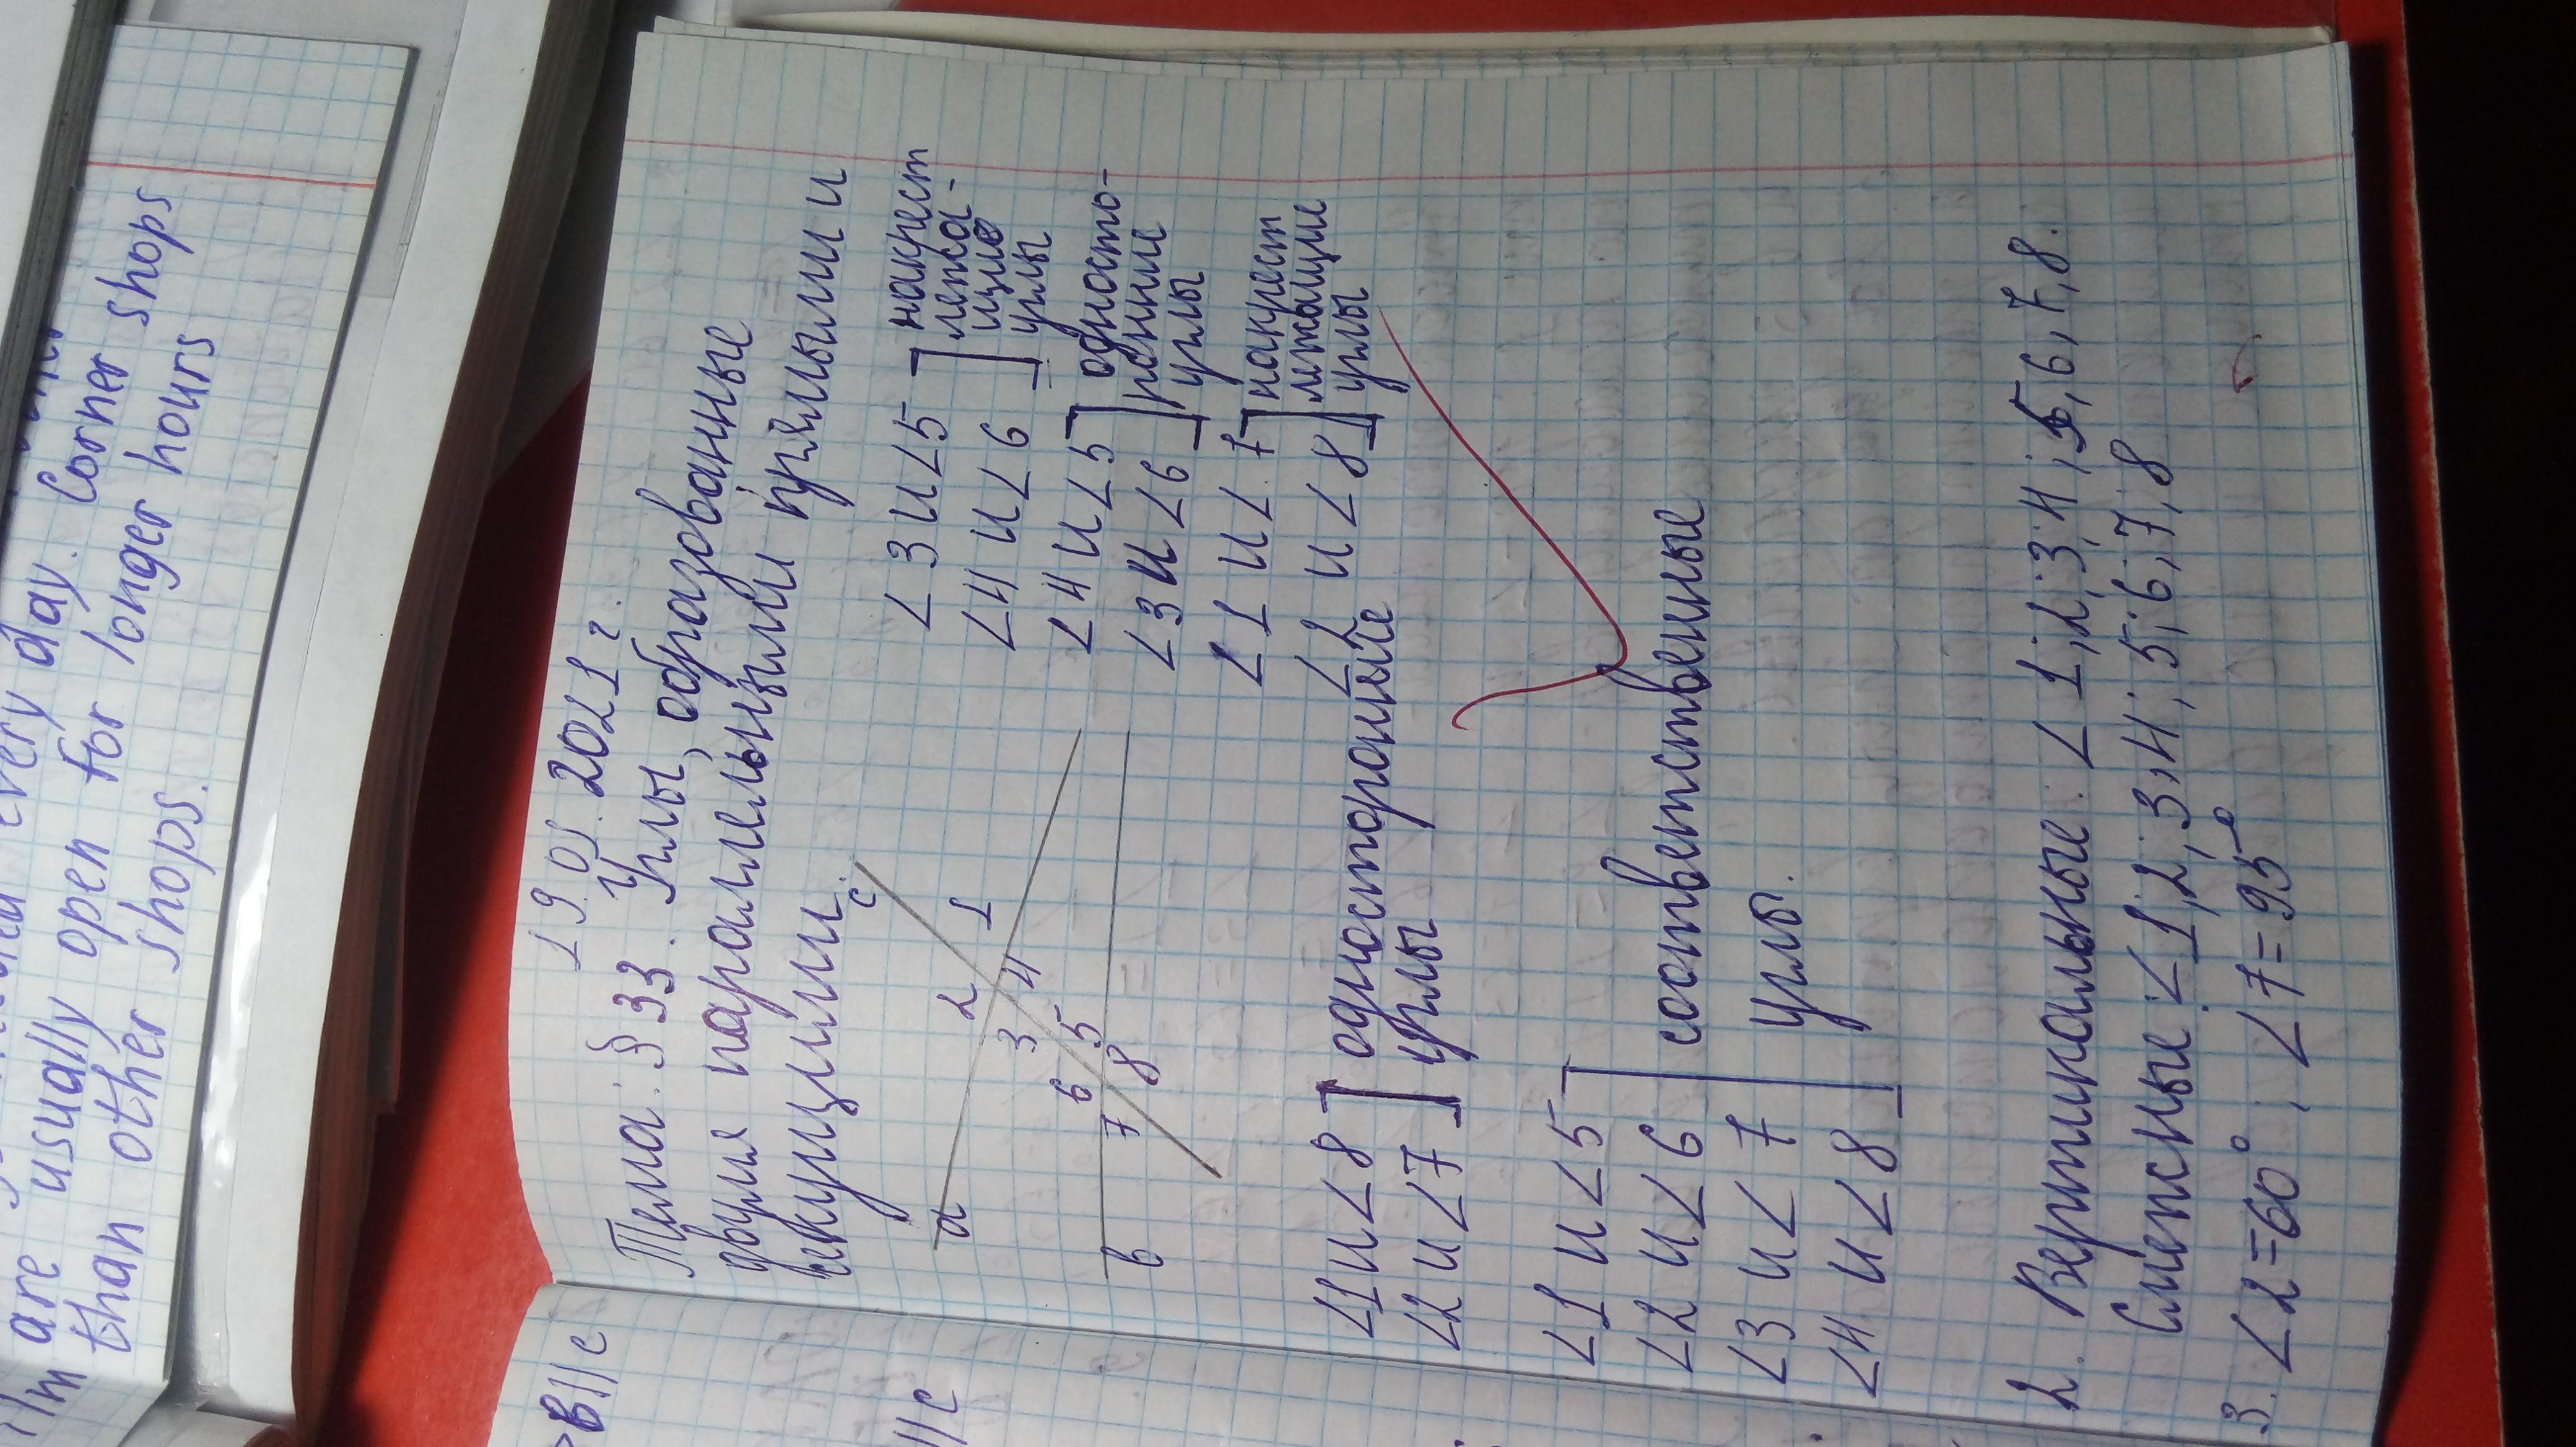 are usually open every day. Corner shops
than other shops.
for longer hours
19.05.2021 г.
Тема: § 33. Углы, образованные
двумя параллельными прямыми и
секущими.
a
b
c
1
2
3
4
5
6
7
8
<3 и <5
<4 и <6
накрест
лежа-
щие
углы
<4 и <5
<3 и <6
односто-
ронние
углы
<1 и <7
<2 и <8
накрест
лежащие
углы
<1 и <8
<2 и <7
односторонние
углы
<1 и <5
<2 и <6
<3 и <7
<4 и <8
соответственные
углы.
2. Вертикальные: < 1; 2; 3; 4; 5; 6; 7; 8.
Смежные: < 1; 2; 3; 4; 5; 6; 7; 8
3. <2=60°; <7=95°
b||c
||c